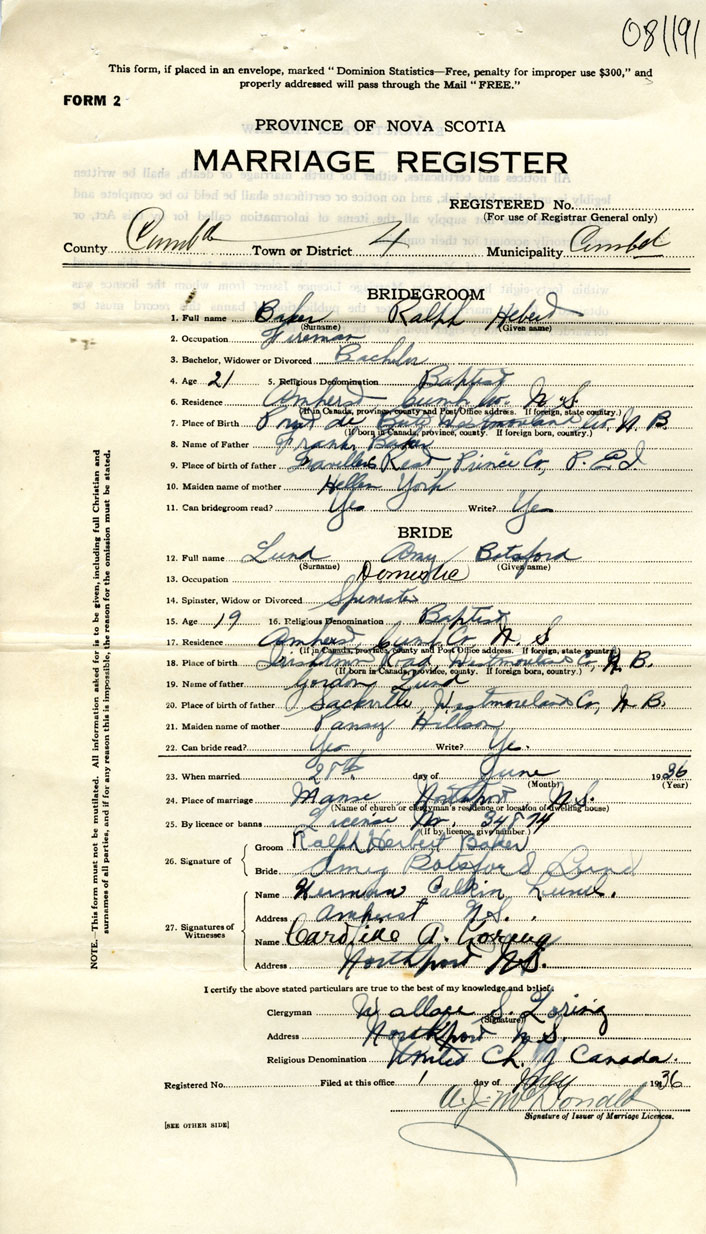 081191
This form, if placed in an envelope, marked "Dominion Statistics—Free, penalty for improper use $300," and
properly addressed will pass through the Mail "FREE."
FORM 2
PROVINCE OF NOVA SCOTIA
MARRIAGE REGISTER
REGISTERED No.
(For use of Registrar General only)
County Cumbld Town or District 4 Municipality Cumbd
BRIDEGROOM
1. Full name Baker Ralph Hebert
(Surname) (Given name)
2. Occupation Fireman
3. Bachelor, Widower or Divorced Bachelor
4. Age 21 5. Religious Denomination Baptist
6. Residence Amherst Cumb Co. N.S.
(If in Canada, province, county and Post Office address. If foreign, state country.)
7. Place of Birth Port de Bute Westmorland Co, N.B.
(If born in Canada, province, county. If foreign born, country.)
8. Name of Father Frank Baker
9. Place of birth of father Road Prince Co, P.E.I
10. Maiden name of mother Hellen York
11. Can bridegroom read? Yes Write? Yes
BRIDE
12. Full name Lund Amy Botsford
(Surname) (Given name)
13. Occupation Domestic
14. Spinster, Widow or Divorced Spinster
15. Age 19 16. Religious Denomination Baptist
17. Residence Amherst Cumb Co N.S
(If in Canada, province, county and Post Office address. If foreign, state country)
18. Place of birth Road, Westmorland Co, N.B.
(If born in Canada, province, county. If foreign born, country.)
19. Name of father Gordon Lund
20. Place of birth of father Sackville, Westmoreland Co, N.B.
21. Maiden name of mother Pansy Hillson
22. Can bride read? Yes Write? Yes.
23. When married 28th day of June 1936
(Month) (Year)
24. Place of marriage Manse Northport N.S.
(Name of church or clergyman's residence or location of dwelling house)
25. By licence or banns License No. 34874
(If by licence, give number.)
26. Signature of
Groom Ralph Herbert Baker
Bride Amy Botsford Lund
27. Signatures of Witnesses
Name Herman Calkin Lund.
Address Amherst N.S.
Name Caroline A.
Address Northport N.S.
I certify the above stated particulars are true to the best of my knowledge and belief.
Clergyman Wallace S. Loring
(Signature)
Address Northport N.S.
Religious Denomination United Ch. of Canada.
Registered No. Filed at this office 1 day of July 1936
A.J. McDonald
Signature of Issuer of Marriage Licences.
[SEE OTHER SIDE]
NOTE.—This form must not be mutilated. All information asked for is to be given, including full Christian and
surnames of all parties, and if for any reason this is impossible, the reason for the omission must be stated.